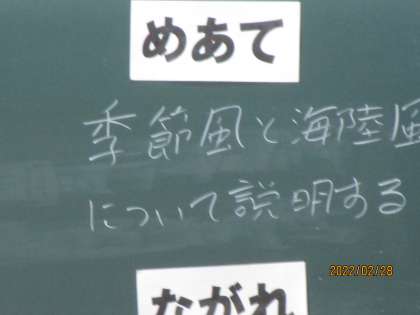 めあて
季節風と海陸風
について説明する
ながれ
2022/02/28